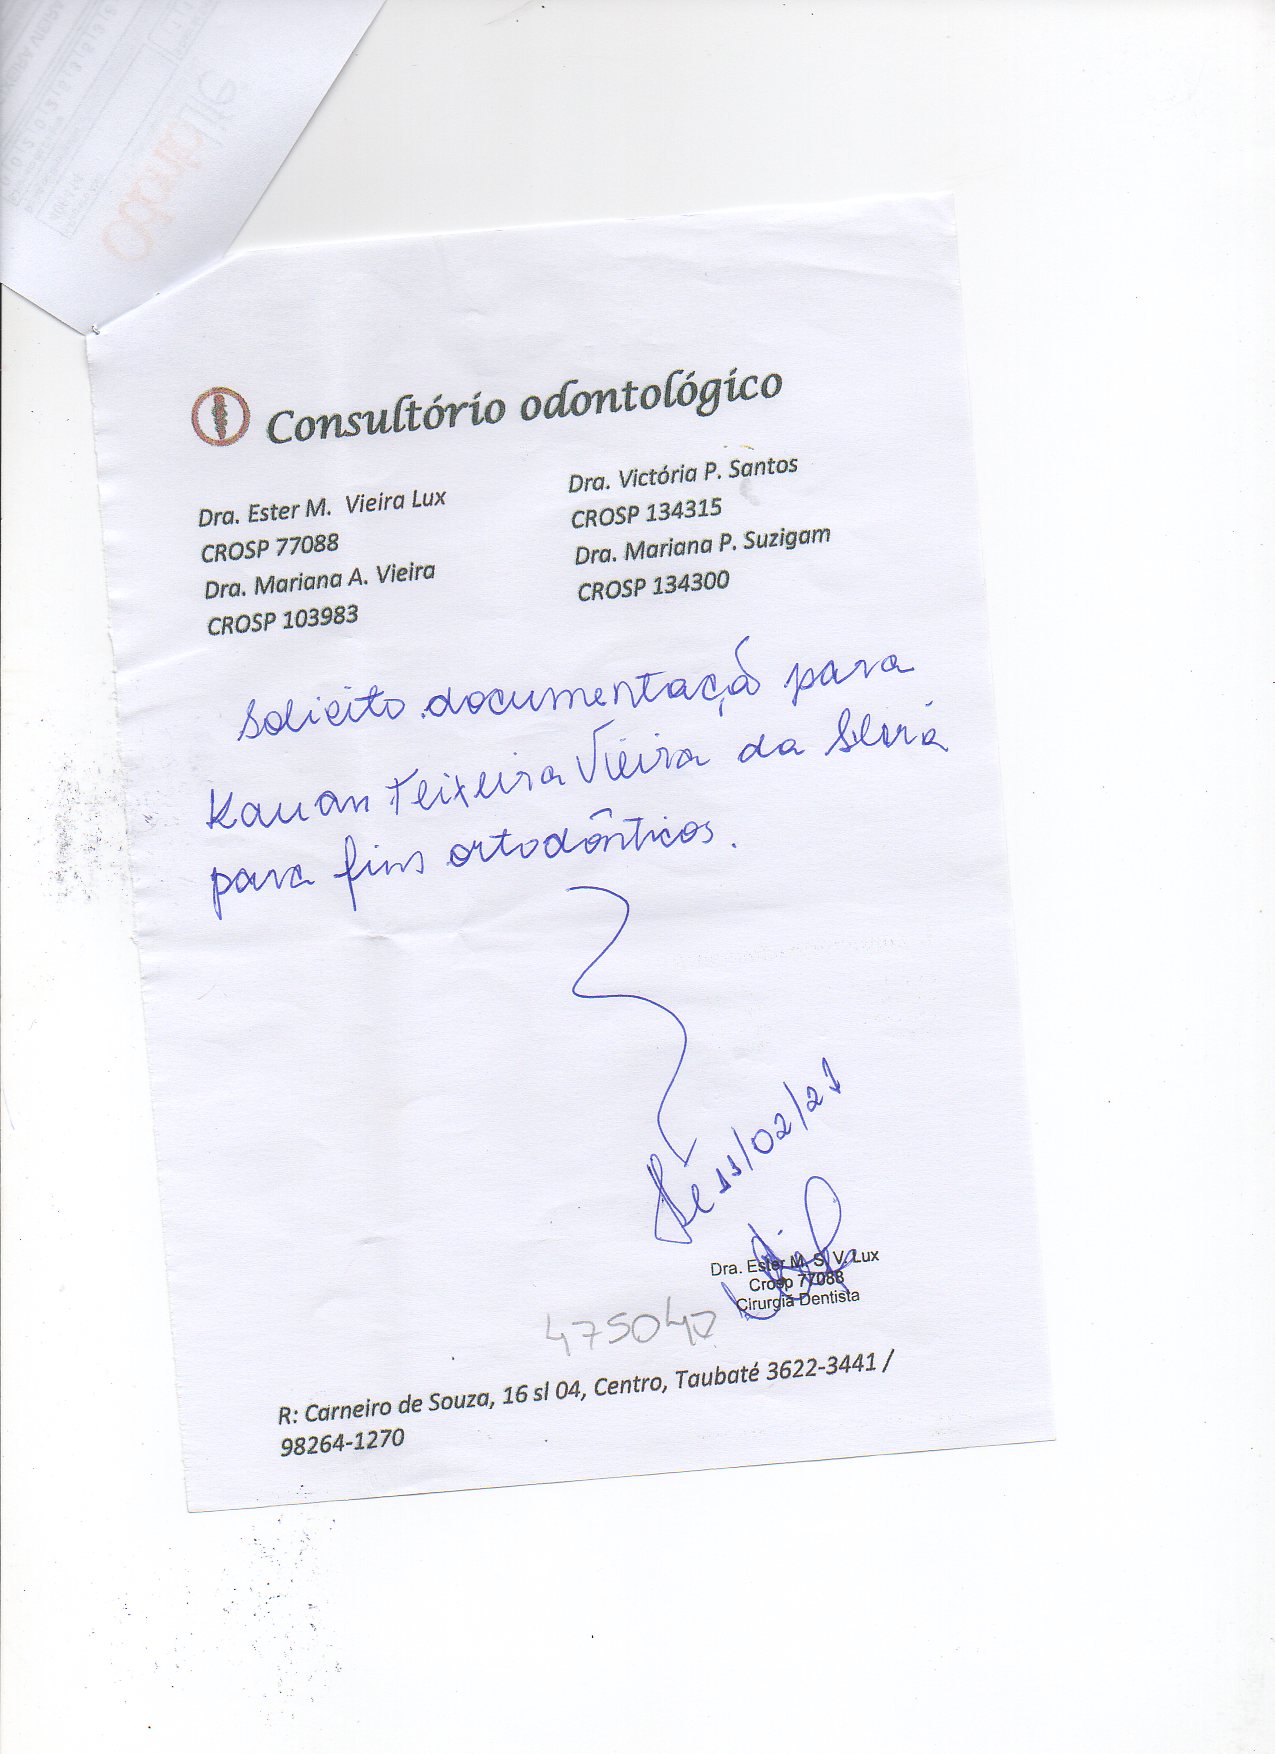 Consultório odontológico
Dra. Ester M. Vieira Lux
CROSP 77088
Dra. Mariana A. Vieira
CROSP 103983
Dra. Victória P. Santos
CROSP 134315
Dra. Mariana P. Suzigam
CROSP 134300
Solicito documentação para
Kauan Teixeira Vieira da Silva
para fins ortodônticos.
11/02/21
Dra. Ester M. S. V. Lux
Crosp 77088
Cirurgiã Dentista
475047
R: Carneiro de Souza, 16 sl 04, Centro, Taubaté 3622-3441 /
98264-1270